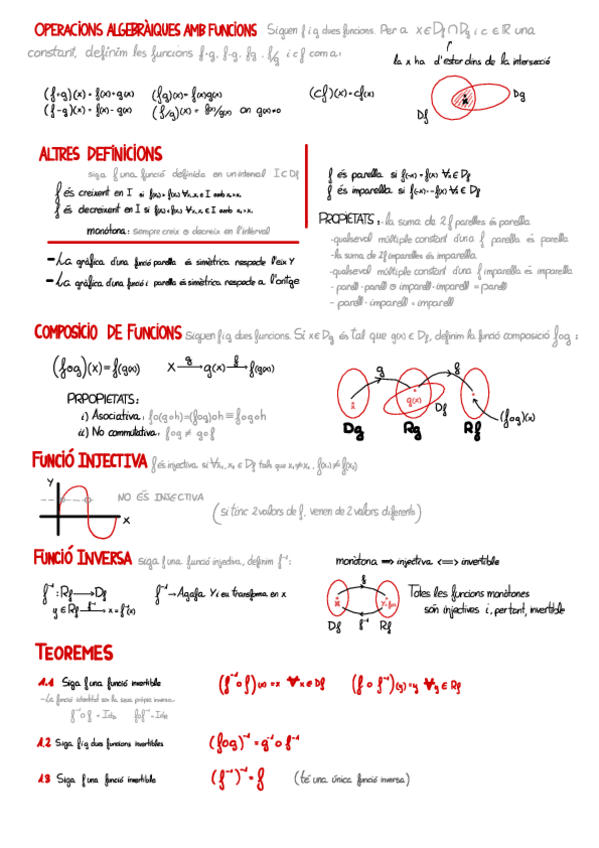 OPERACIONS ALGEBRÀIQUES AMB FUNCIONS Siguen f i g dues funcions. Per a x∈Df∩Dg i c∈ℝ una
constant, definim les funcions f+g, f-g, fg, f/g i cf com a:
la x ha d'estar dins de la intersecció
(f+g)(x) = f(x)+g(x) (fg)(x) = f(x)g(x) (cf)(x) = cf(x)
(f-g)(x) = f(x)-g(x) (f/g)(x) = f(x)/g(x) on g(x)≠0
x
Df Dg
ALTRES DEFINICIONS
siga f una funció definida en un interval I⊂Df
f és creixent en I si
f és decreixent en I si
monòtona: sempre creix o decreix en l'interval
-La gràfica d'una funció parella és simètrica respecte l'eix Y
-La gràfica d'una funció imparella és simètrica respecte a l'origen
f és parella si f(-x) = f(x) ∀x∈Df
f és imparella si f(-x) = -f(x) ∀x∈Df
PROPIETATS: -la suma de 2 f parelles és parella
-qualsevol múltiple constant d'una f parella és parella
-la suma de 2 f imparelles és imparella
-qualsevol múltiple constant d'una f imparella és imparella
- parell · parell o imparell · imparell = parell
- parell · imparell = imparell
COMPOSICIÓ DE FUNCIONS Siguen f i g dues funcions. Si x∈Dg és tal que g(x)∈Df, definim la funció composició fog:
(fog)(x) = f(g(x)) X g→ g(x) f→ f(g(x))
PROPIETATS:
i) Associativa: fo(goh)=(fog)oh≡fogoh
ii) No commutativa: fog ≠ gof
g f
x g(x) Df (fog)(x)
Dg Rg Rf
FUNCIÓ INJECTIVA f és injectiva si ∀x₁,x₂ ∈ Df tals que x₁≠x₂, f(x₁)≠f(x₂)
Y
NO ÉS INJECTIVA
(si tinc 2 valors de f, venen de 2 valors diferents)
X
FUNCIÓ INVERSA siga f una funció injectiva, definim f⁻¹:
monòtona ⟹ injectiva ⟺ invertible
f⁻¹: Rf→Df f⁻¹→Agafa Y i eu transforma en x
y∈Rf f⁻¹→ x=f⁻¹(x)
f
x y=f(x)
Df f⁻¹ Rf
Totes les funcions monòtones
són injectives i, per tant, invertible
TEOREMES
1.1 Siga f una funció invertible (f⁻¹of)(x)=x ∀x∈Df (fof⁻¹)(y)=y ∀y∈Rf
-La funció identitat són la seua pròpia inversa.
f⁻¹of = Id fof⁻¹ = Id
1.2 Siga f i g dues funcions invertibles (fog)⁻¹ = g⁻¹of⁻¹
1.3 Siga f una funció invertible (f⁻¹)⁻¹ = f (té una única funció inversa)